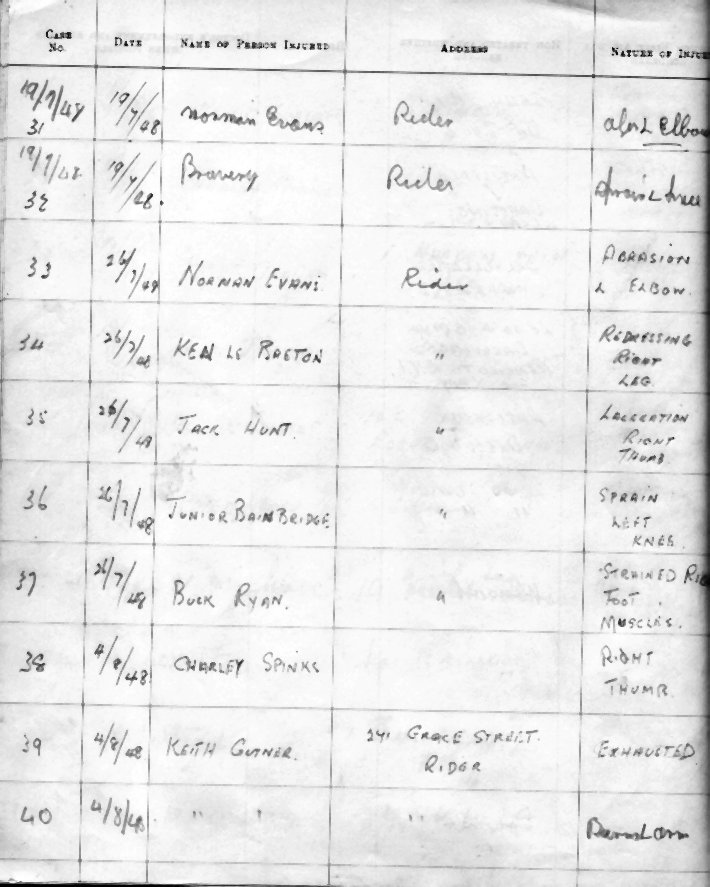 CASE No. DATE NAME OF PERSON INJURED ADDRESS NATURE OF INJUR
19/7/48 31 19/7/48 Norman Evans Rider L Elbow
19/7/48 32 19/7/48 Bravery Rider L knee
33 26/7/48 NORMAN EVANS Rider ABRASION
L ELBOW.
34 26/7/48 KEN LE BRETON " REDRESSING
RIGHT
LEG.
35 26/7/48 JACK HUNT. " LACERATION
RIGHT
THUMB
36 26/7/48 JUNIOR BAINBRIDGE " SPRAIN
LEFT
KNEE.
37 26/7/48 BUCK RYAN. " STRAINED RIG
FOOT.
MUSCLES.
38 4/8/48 CHARLEY SPINKS RIGHT
THUMB.
39 4/8/48 KEITH GURNER. 241 GRACE STREET. EXHAUSTED
RIDER
40 4/8/48 " " " Burns L arm